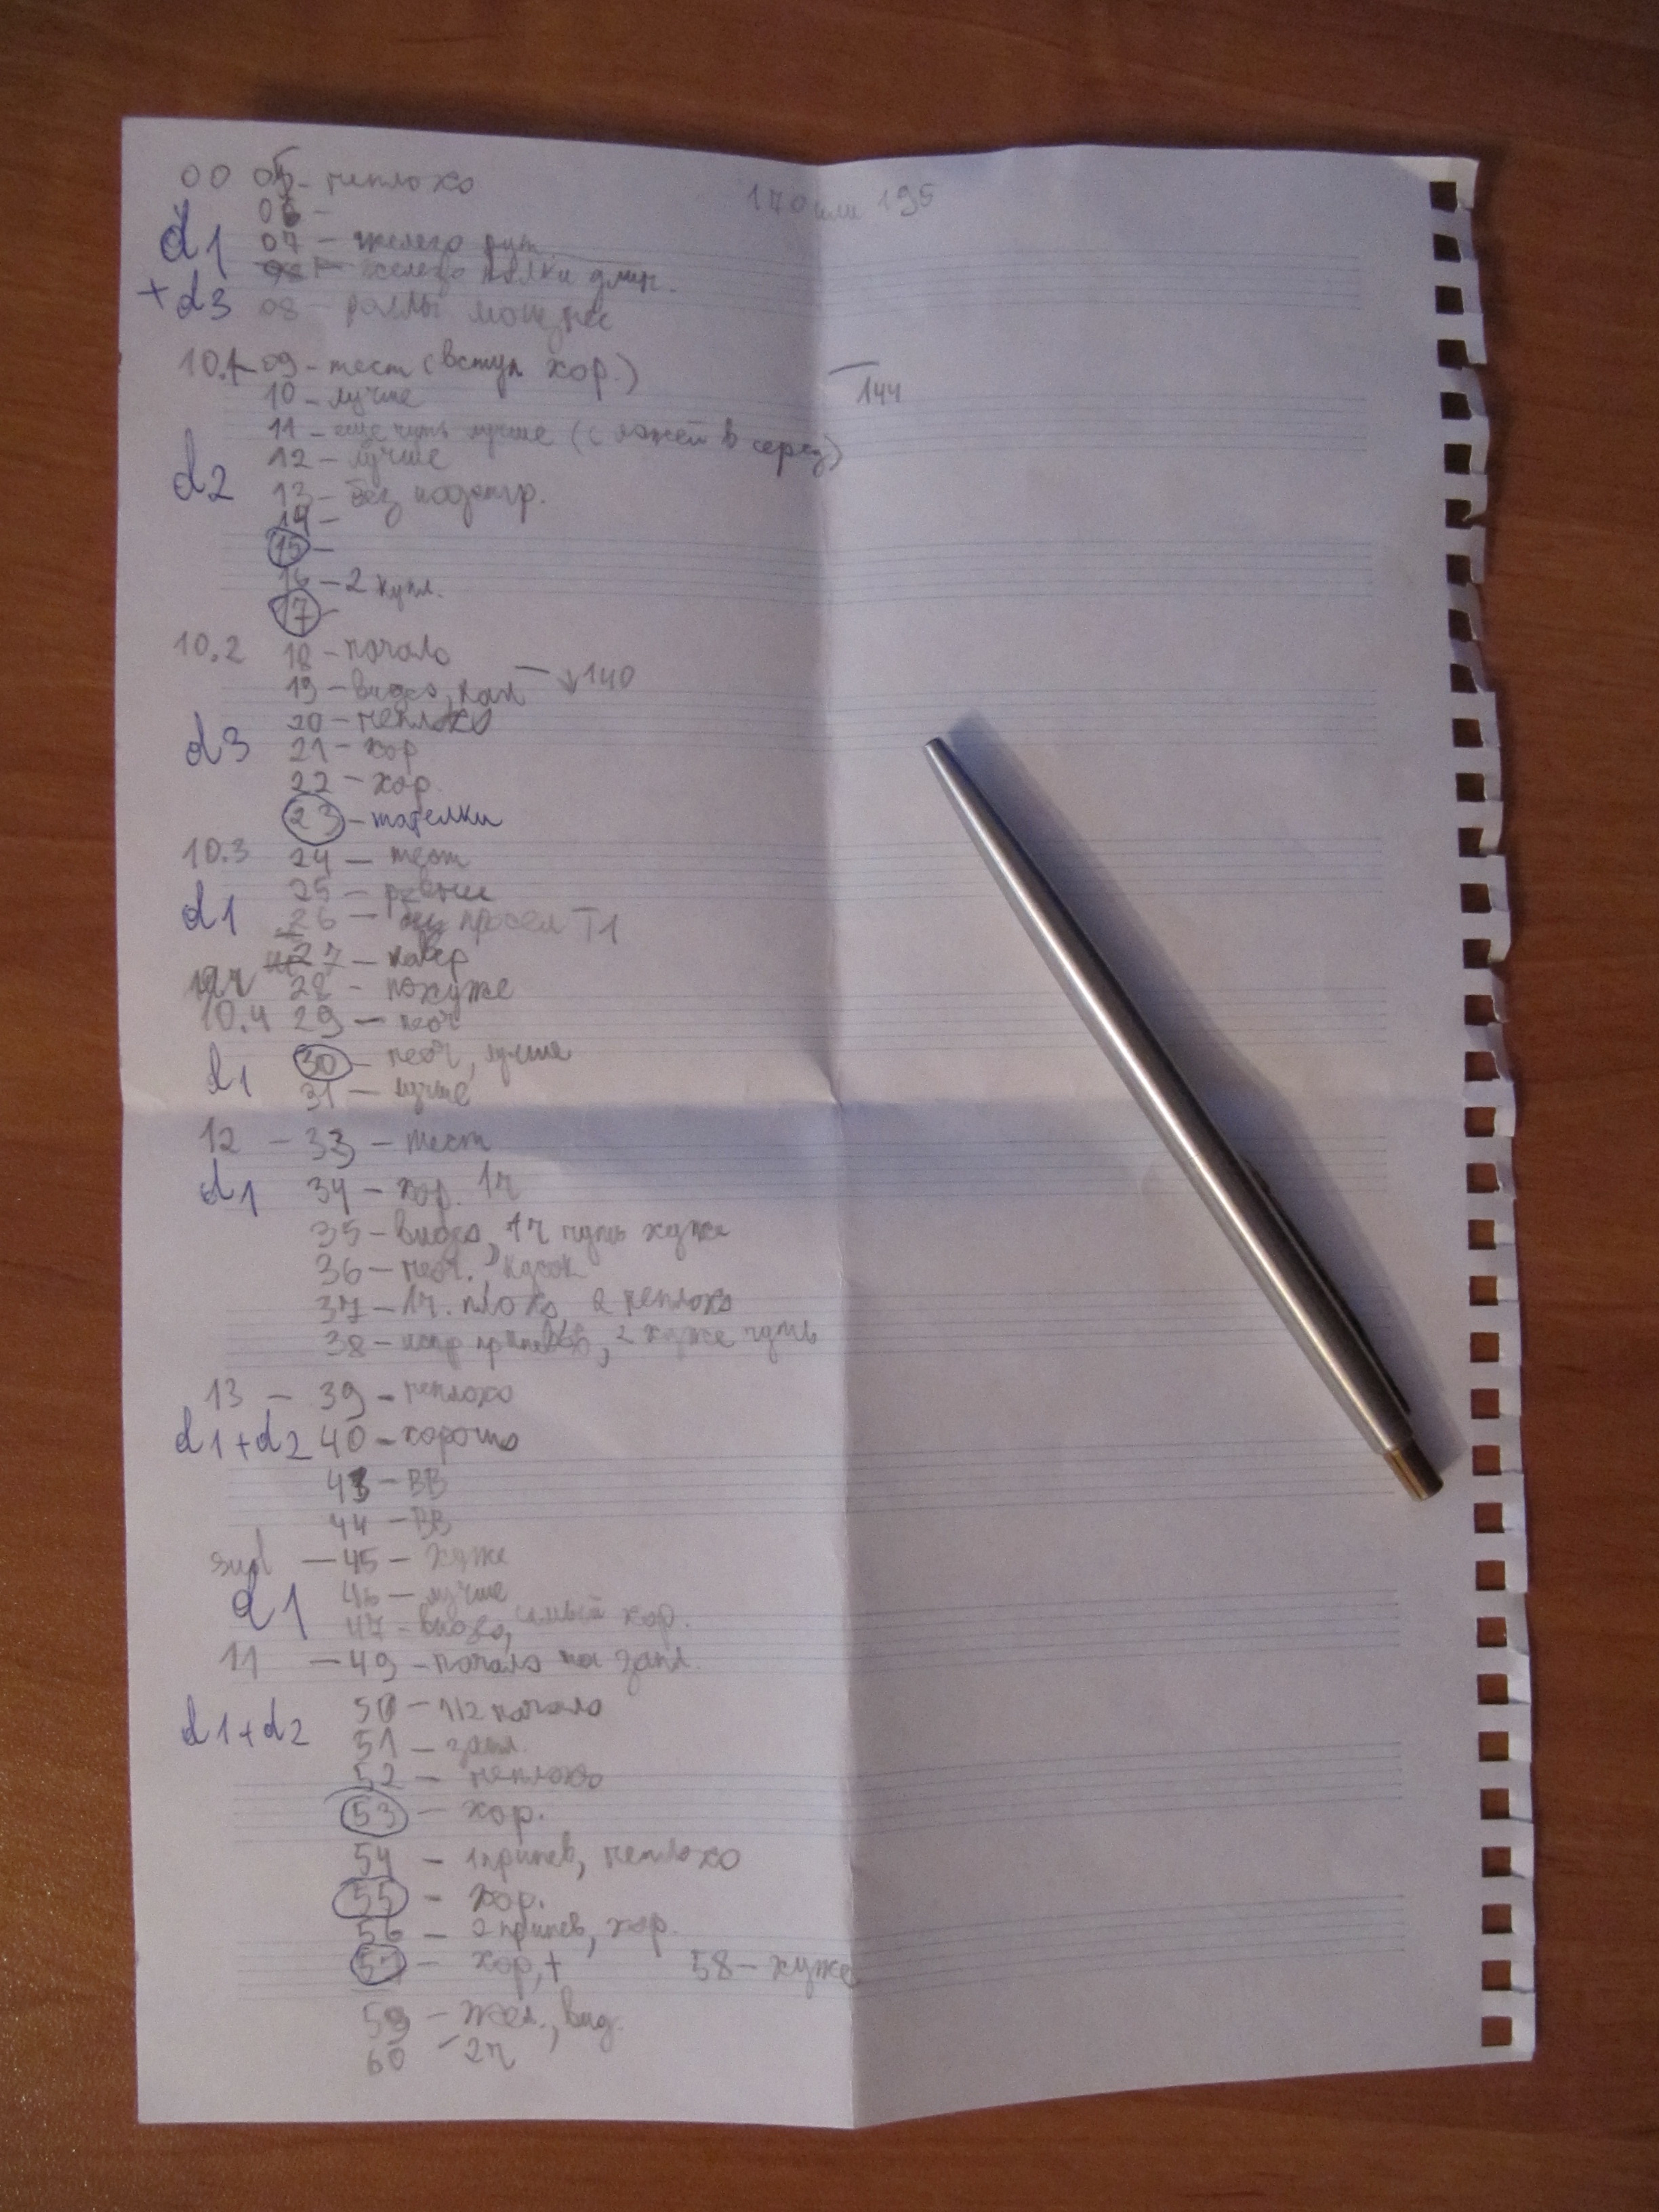 00 05 - неплохо
170 или 195
06 -
d1 07 - железо
железо
+d3 08 - роллы
10.1 - 09 - тест (вступ хор.)
144
10 - лучше
11 - еще чуть лучше (с лажей в серед)
12 - лучше
d2 13 - без подстр.
14 -
15 -
16 - 2 купл.
17 -
10.2 18 - начало
19 - видео, ↓140
20 - неплохо
d3 21 - хор
22 - хор.
23 - тарелки
10.3 24 - тест
25 - ровнее
d1 26 - T1
27 - навер
28 - похуже
10.4 29 - неоч
d1 30 - неоч, лучше
31 - лучше
12 - 33 - тест
d1 34 - хор. 1ч
35 - видео, 1ч чуть хуже
36 - неоч. кусок
37 - 1ч. плохо, 2 неплохо
38 - 2 хуже чуть
13 - 39 - неплохо
d1+d2 40 - хорошо
43 - ВВ
44 - ВВ
- 45 - хуже
d1 46 - лучше
47 - видео, самый хор.
11 - 49 - начало на запл.
d1+d2 50 - 1/2 начало
51 - запл.
52 - неплохо
53 - хор.
54 - 1 припев, неплохо
55 - хор.
56 - 2 припев, хор.
57 - хор, + 58 - хуже
59 - жел., вид.
60 - 2ч